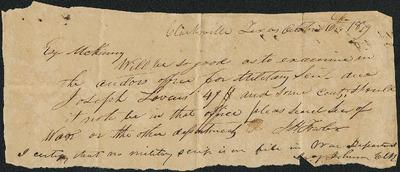 Clarksville Texas October 10th 18
McKinny
Will be so good as to examine in
the auditors office for Military Scrip due
Joseph Lovens 47 $ and some cents, should
it not be in that office please send Sec of
War or the other department
I certify that no military scrip is on file in War Department